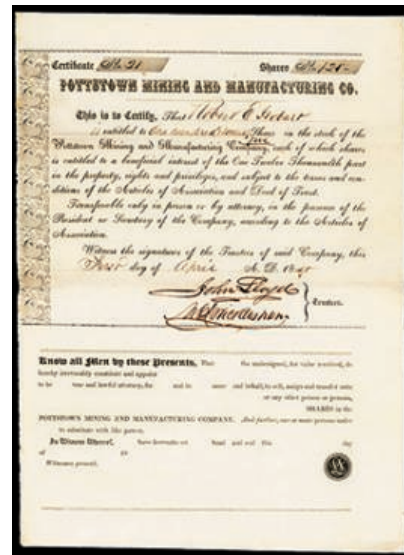 Certificate No. 21 Shares No. 125
POTTSTOWN MINING AND MANUFACTURING CO.
This is to Certify, That Robert E Hobart
is entitled to One hundred Shares in the stock of the
Pottstown Mining and Manufacturing Company, each of which shares
is entitled to a beneficial interest of the One Twelve Thousandth part
in the property, rights and privileges, and subject to the terms and con-
ditions of the Articles of Association and Deed of Trust.
Transferable only in person or by attorney, in the presence of the
President or Secretary of the Company, according to the Articles of
Association.
Witness the signatures of the Trustees of said Company, this
First day of April A. D. 18
John Lloyd
Trustees.
Know all Men by these Presents, That the undersigned, for value received, do
hereby irrevocably constitute and appoint
to be true and lawful attorney, for and in name and behalf, to sell, assign and transfer unto
or any other person or persons,
SHARES in the
POTTSTOWN MINING AND MANUFACTURING COMPANY. And further, one or more persons under
to substitute with like power.
In Witness Whereof, have hereunto set hand and seal this day
of 18
Witnesses present.